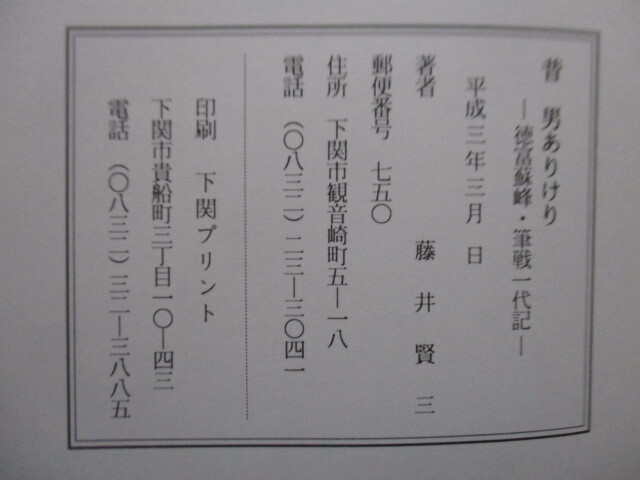 昔　男ありけり
―徳富蘇峰・筆戦一代記―
平成三年三月　日
著者　藤井賢三
郵便番号　七五〇
住所　下関市観音崎町五―一八
電話　（〇八三二）二三―三〇四一
印刷　下関プリント
下関市貴船町三丁目一〇―四三
電話　（〇八三二）三二―三八八五